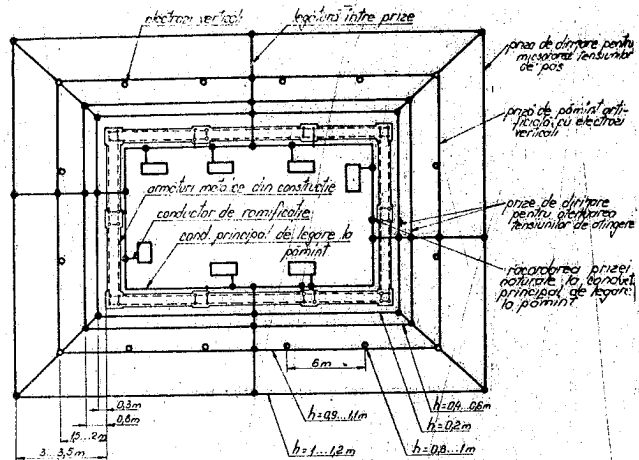 electrozi verticali
legătură între prize
priza de dirijare pentru
micșorarea tensiunilor
de pas
priza de pămînt arti-
ficială cu electrozi
verticali
armături metalice din construcție
conductor de ramificație
cond. principal de legare la
pămînt
prize de dirijare
pentru atenuarea
tensiunilor de atingere
racordarea prizei
naturale la conduct.
principal de legare
la pămînt
6m
0,3m
0,8m
1,5...2m
3...3,5m
h=0,9...1,1m
h=1...1,2m
h=0,4...0,6m
h=0,2m
h=0,8...1m